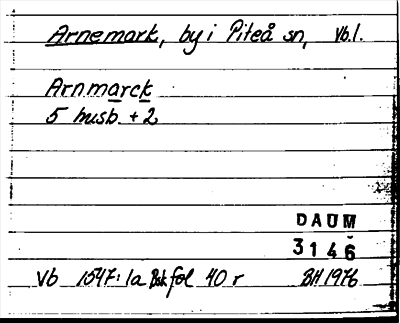 Arnemark, by i Piteå sn, Vb.l.
Arnmarck
5 husb. + 2
DAUM
3146
Vb 1547:1a Bsk fol 40 r BH 1976